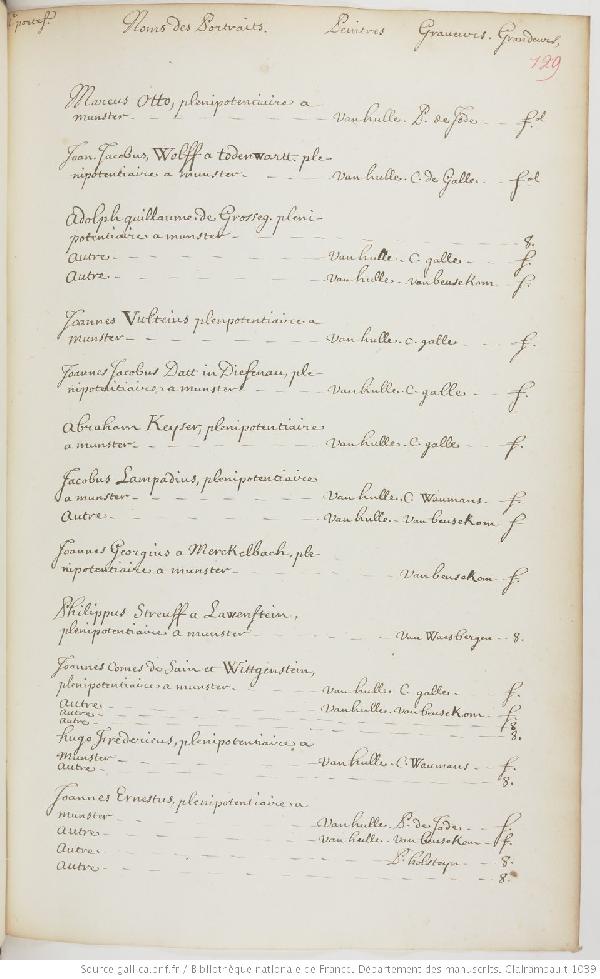 portef. Noms des Portraits. Peintres Graveurs. Grandeurs,
129
Marcus Otto, plenipotentiaire a
munster - Van hulle. P. de Jode - f.d
Joan. Jacobus, Wolff a todenwartt, ple-
nipotentiaire a munster - Van hulle. C. de Galle - f.d
Adolph guillaume de Grosseg. pleni-
potentiaire a munster - 8.
Autre - Van hulle - C. galle - f.
Autre - Van hulle - van beusekom - f.
Joannes Vulteius plenipotentiaire a
munster - Van hulle. C. galle - f.
Joannes Jacobus Datt in Diefenau, ple-
nipotentitiaire, a munster - Van hulle. C. galle - f.
Abraham Keyser, plenipotentiaire
a munster - Van hulle. C. galle - f.
Jacobus Lampadius, plenipotentiaire
a munster - Van hulle. C. Waumans - f.
Autre - Van hulle. Van beusekom f
Joannes Georgius a Merckelbach, ple-
nipotentiaire a munster - Van beusekom - f.
Philippus Streuff a Lawenstein,
plenipotentiaire a munster - Van Waesbergen - 8.
Joannes Comes de Sain et Wittgenstein,
plenipotentiaire a munster - Van hulle C. galle - f.
Autre - Van hulle. van beusekom - f.
autre - 8.
autre - 8.
Hugo Fredericus, plenipotentiaire a
Munster - Van hulle. C. Waumans - f.
Autre - 8.
Joannes Ernestus, plenipotentiaire a
munster - Van hulle. P. de Jode - f.
Autre - Van hulle - van beusekom - f.
Autre - P. holsteyn - 8.
Autre - 8.
Source gallica.bnf.fr / Bibliothèque nationale de France. Département des manuscrits. Clairambault 1039